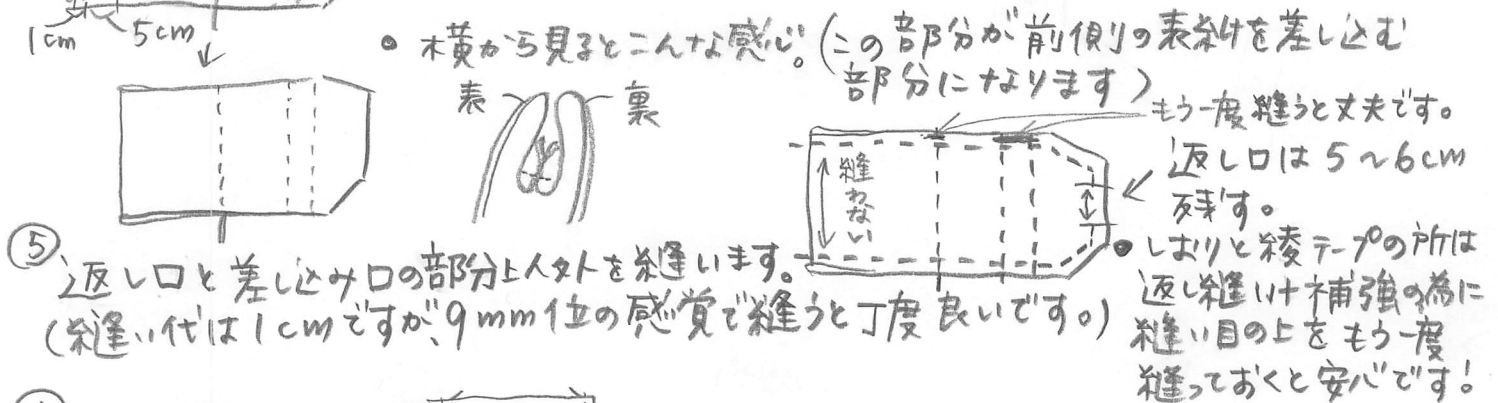 1cm 5cm
• 横から見るとこんな感じ。(この部分が前側の表紙を差し込む
部分になります)
表 裏
もう一度縫うと丈夫です。
返し口は5〜6cm
残す。
縫わない
⑤
返し口と差し込み口の部分以外を縫います。
(縫い代は1cmですが、9mm位の感覚で縫うと丁度良いです。)
• しおりと綾テープの所は
返し縫い+補強の為に
縫い目の上をもう一度
縫っておくと安心です!